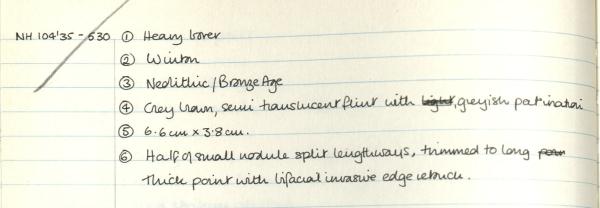 NH 104'35 - 530 ① Heavy borer
② Winton
③ Neolithic / Bronze Age
④ Grey brown, semi translucent flint with light, greyish patination
⑤ 6.6cm x 3.8cm.
⑥ Half of small nodule split lengthways, trimmed to long
thick point with bifacial invasive edge retouch.